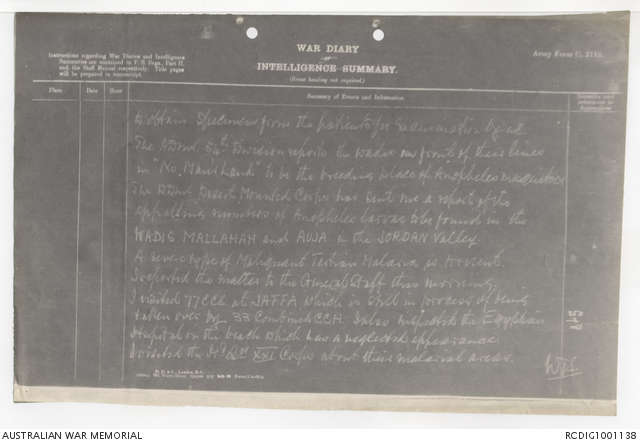 Instructions regarding War Diaries and Intelligence
Summaries are contained in F. S. Regs., Part II.
and the Staff Manual respectively. Title pages
will be prepared in manuscript.
WAR DIARY
or
INTELLIGENCE SUMMARY.
(Erase heading not required.)
Army Form C. 2118.
Place
Date
Hour
Summary of Events and Information
Remarks and
references to
Appendices
to obtain specimens from the patients for examination
The ADMS. 54th Division reports the wadis in front of their lines
in "No Man's Land" to be the breeding place of Anopheles mosquitoes
The DDMS. Desert Mounted Corps has sent me a report of the
appalling numbers of Anopheles larvae to be found in the
WADIS MALLAHAH and AUJA in the JORDAN Valley.
A severe type of Malignant Tertian Malaria is present.
I reported the matter to the General Staff this morning.
I visited 77 CCS at JAFFA which is still in process of being
taken over by 33 Combined CCH. I also inspected the Egyptian
Hospital on the beach which has a neglected appearance.
I visited the XXI Corps about their malarial areas.
AUSTRALIAN WAR MEMORIAL
RCDIG1001138